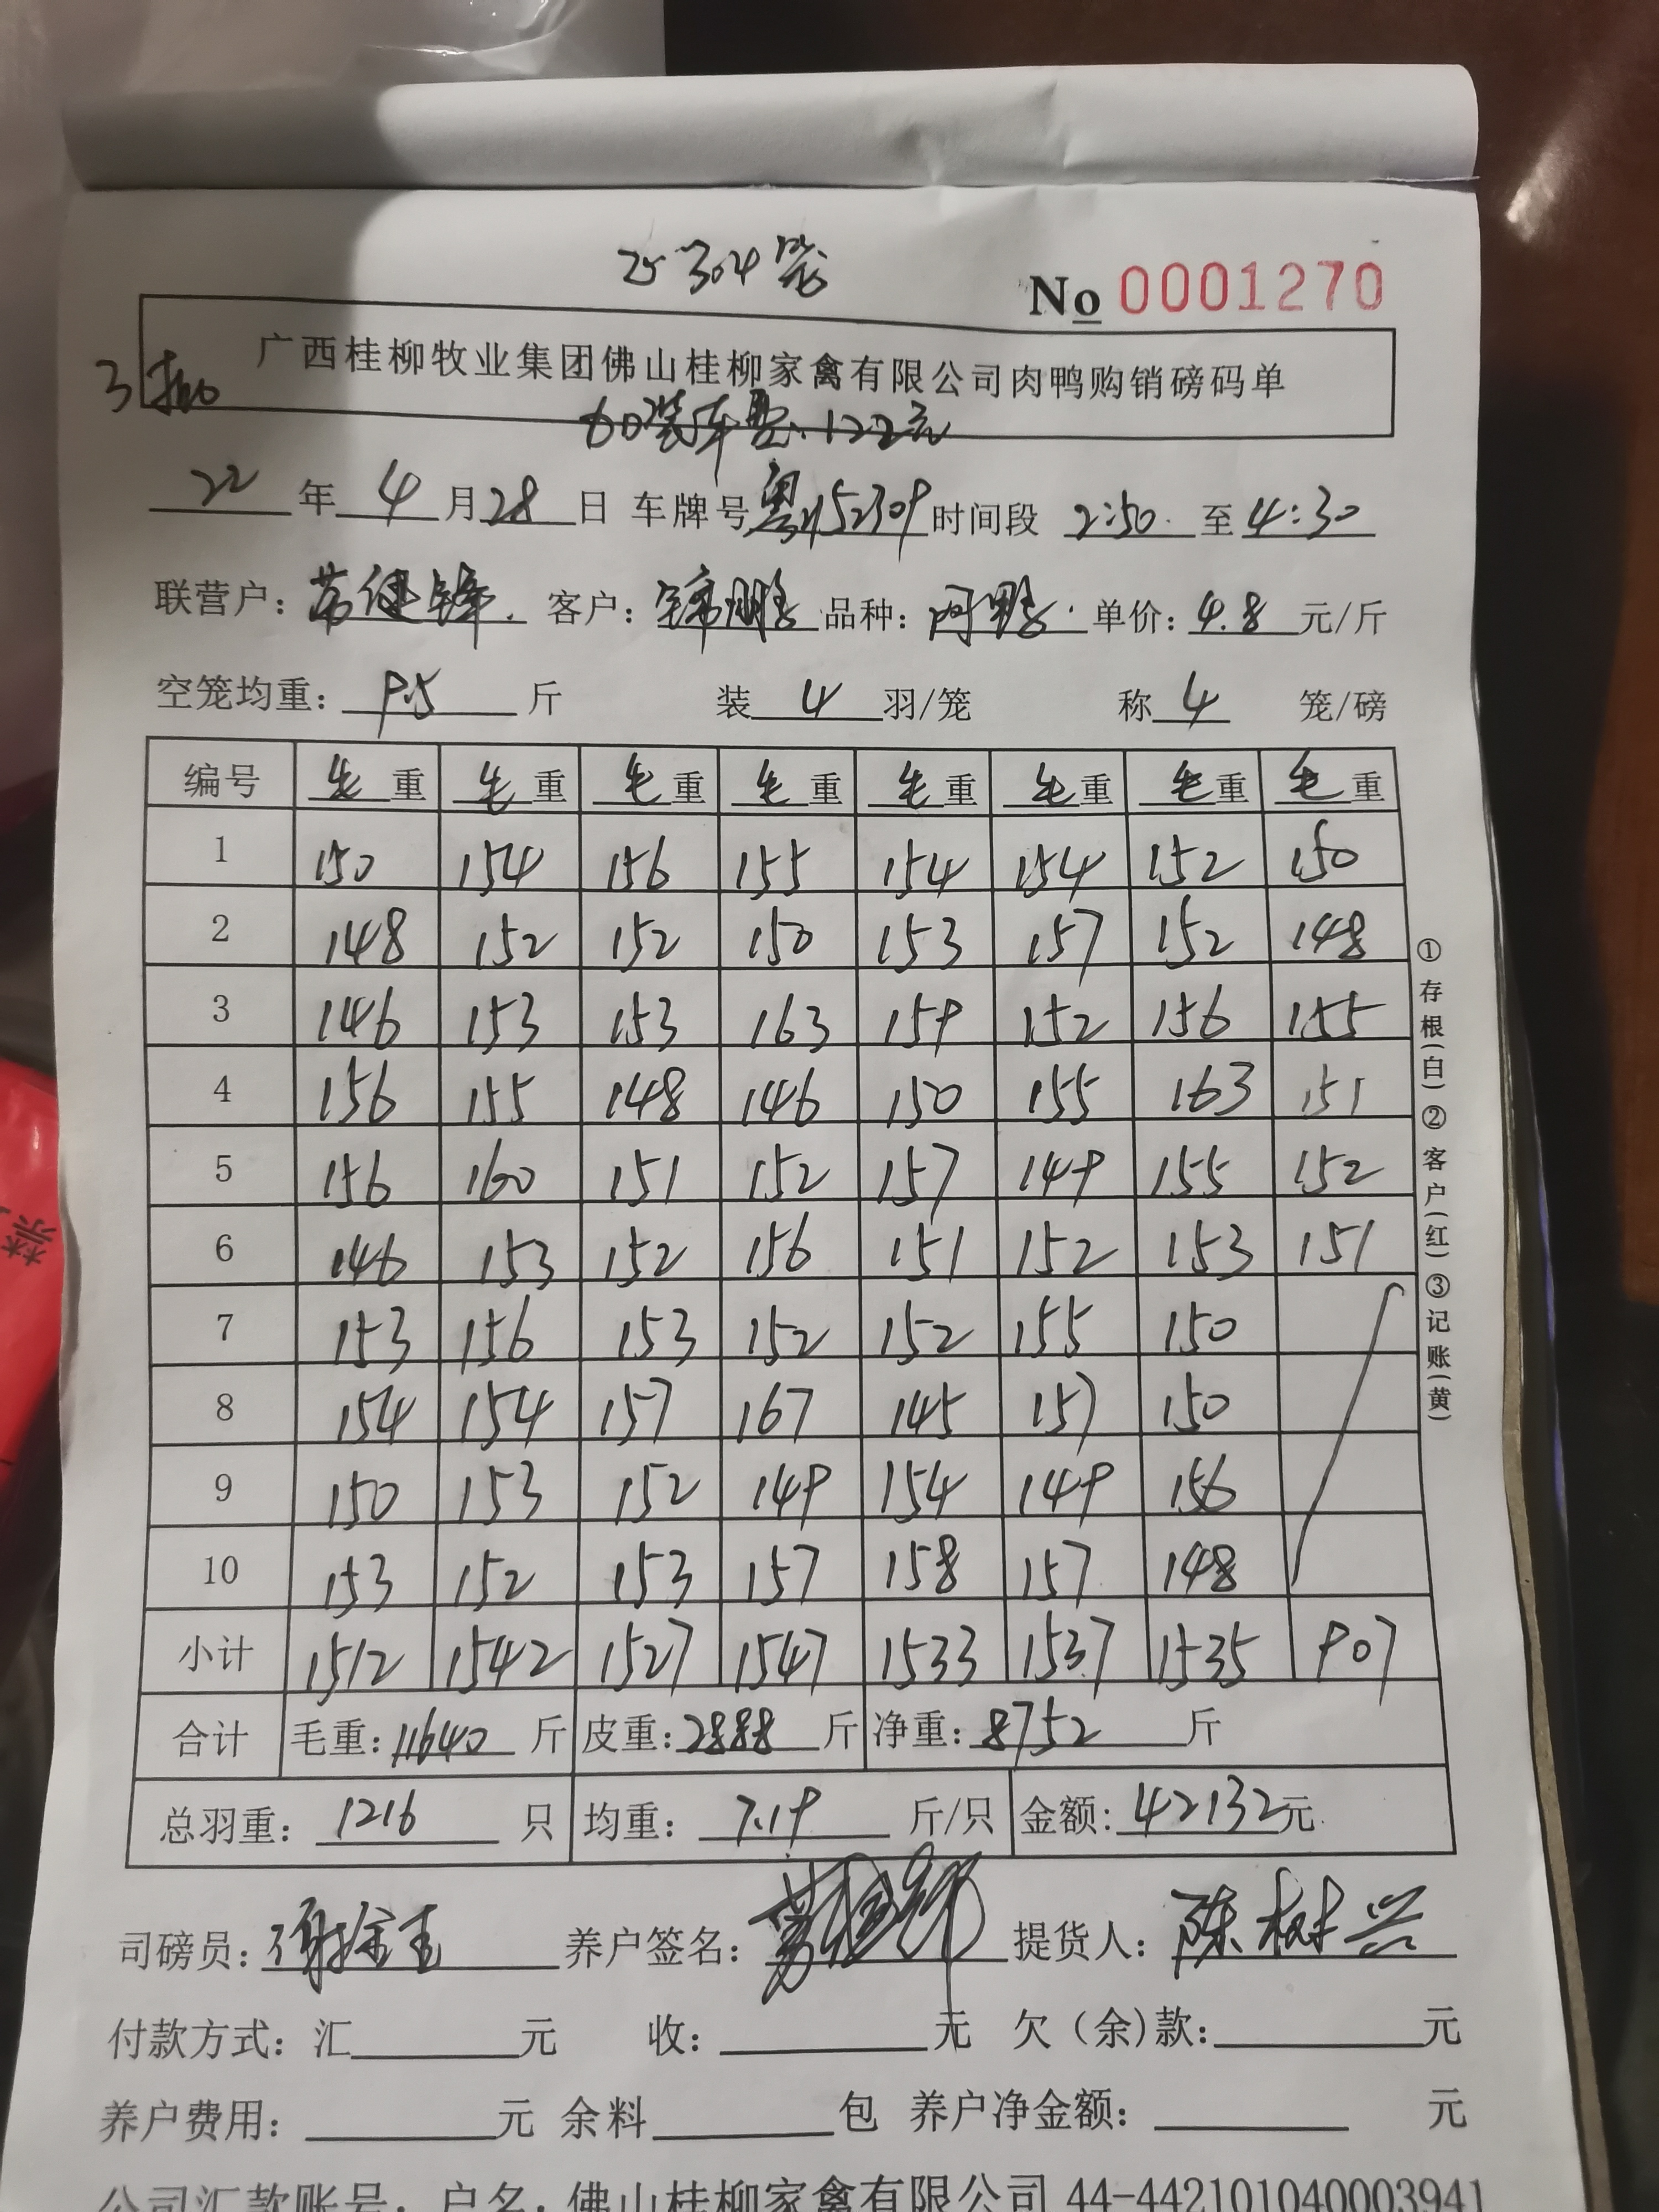 304笼
No 0001270
广西桂柳牧业集团佛山桂柳家禽有限公司肉鸭购销磅码单
3批
60装车费.122元
22年4月28日 车牌号粤 15230P 时间段 2:50 至 4:30
联营户: 客户:锦鹏 品种: 单价:4.8元/斤
空笼均重:9.5斤 装4羽/笼 称4笼/磅
编号 毛重 毛重 毛重 毛重 毛重 毛重 毛重 毛重
1 150 154 156 155 154 154 152 150
2 148 152 152 150 153 157 152 148
3 146 153 153 163 159 152 156 155
4 156 155 148 146 150 155 163 151
5 156 160 151 152 157 149 155 152
6 146 153 152 156 151 152 153 151
7 153 156 153 152 152 155 150
8 154 154 157 167 145 157 150
9 150 153 152 149 154 149 156
10 153 152 153 157 158 157 148
小计 1512 1542 1527 1547 1533 1537 1535 907
合计 毛重:11640斤 皮重:2888斤 净重:8752斤
总羽重:1216只 均重:7.19斤/只 金额:42132元
司磅员: 养户签名: 提货人:陈树兴
付款方式:汇 元 收: 元 欠(余)款: 元
养户费用: 元 余料 包 养户净金额: 元
公司汇款账号:户名:佛山桂柳家禽有限公司 44-442101040003941
①存根(白)②客户(红)③记账(黄)